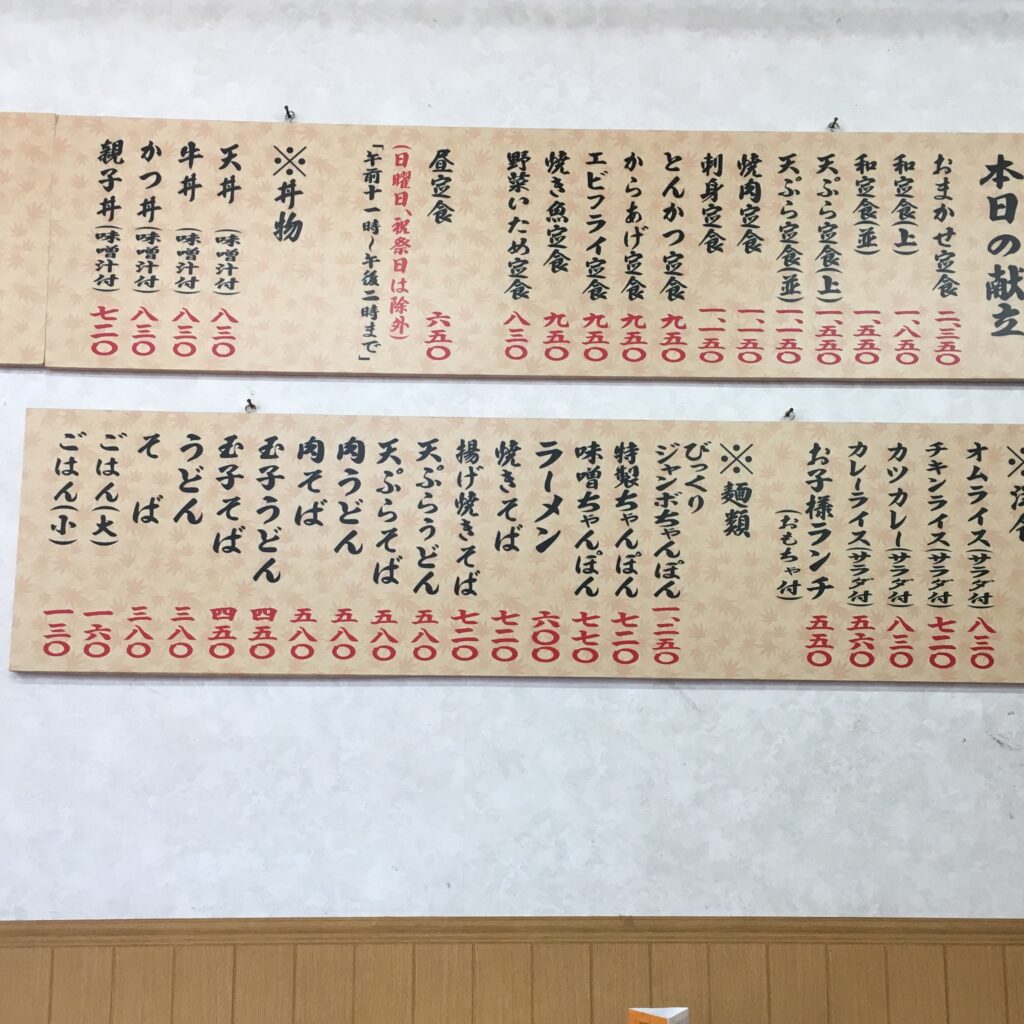 本日の献立
おまかせ定食 二、三五〇
和定食(上) 一、八五〇
和定食(並) 一、五五〇
天ぷら定食(上) 一、五五〇
天ぷら定食(並) 一、一五〇
焼肉定食 一、一五〇
刺身定食 一、一五〇
とんかつ定食 九五〇
からあげ定食 九五〇
エビフライ定食 九五〇
焼き魚定食 九五〇
野菜いため定食 八三〇
昼定食 六五〇
(日曜日、祝祭日は除外)
「午前十一時~午後二時まで」
※丼物
天丼(味噌汁付) 八三〇
牛丼(味噌汁付) 八三〇
かつ丼(味噌汁付) 八三〇
親子丼(味噌汁付) 七二〇
※洋食
オムライス(サラダ付) 八三〇
チキンライス(サラダ付) 七二〇
カツカレー(サラダ付) 八三〇
カレーライス(サラダ付) 五六〇
お子様ランチ 五五〇
(おもちゃ付)
※麺類
びっくり
ジャンボちゃんぽん 一、二五〇
特製ちゃんぽん 七二〇
味噌ちゃんぽん 七七〇
ラーメン 六〇〇
焼きそば 七二〇
揚げ焼きそば 七二〇
天ぷらうどん 五八〇
天ぷらそば 五八〇
肉うどん 五八〇
肉そば 五八〇
玉子うどん 四五〇
玉子そば 四五〇
うどん 三八〇
そば 三八〇
ごはん(大) 一六〇
ごはん(小) 一三〇